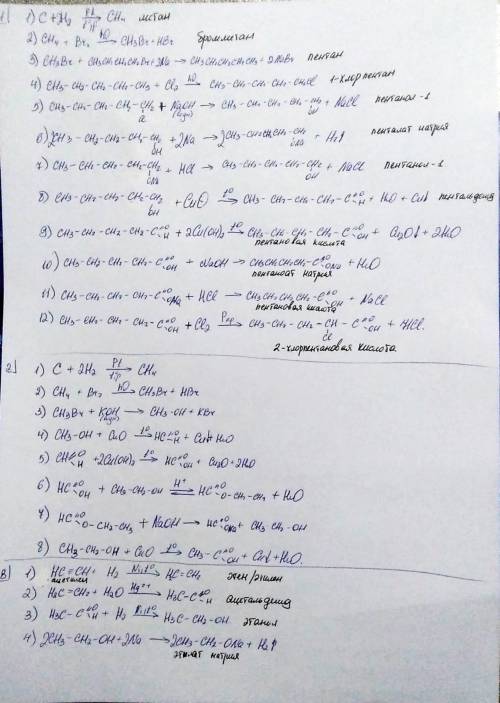 1) 1) C + 2H2 Pt t°p → CH4 метан
2) CH4 + Br2 hυ → CH3Br + HBr бромметан
3) CH3Br + CH3CH2CH2CH2Br + 2Na → CH3CH2CH2CH2CH3 + 2NaBr пентан
4) CH3-CH2-CH2-CH2-CH3 + Cl2 hυ → CH3-CH2-CH2-CH2-CH2Cl 1-хлорпентан
5) CH3-CH2-CH2-CH2-CH2 Cl + NaOH → CH3-CH2-CH2-CH2-CH2 OH + NaCl пентанол-1
6) 2CH3-CH2-CH2-CH2-CH2 OH + 2Na → 2CH3-CH2-CH2-CH2-CH2 ONa + H2↑ пенталат натрия
7) CH3-CH2-CH2-CH2-CH2 ONa + HCl → CH3-CH2-CH2-CH2-CH2 OH + NaCl пентанол-1
8) CH3-CH2-CH2-CH2-CH2 OH + CuO t° → CH3-CH2-CH2-CH2-C=O H + H2O + Cu↓ пентальдегид
9) CH3-CH2-CH2-CH2-C=O H + 2Cu(OH)2 t° → CH3-CH2-CH2-CH2-C=O OH + Cu2O↓ + 2H2O
пентановая кислота
10) CH3-CH2-CH2-CH2-C=O OH + NaOH → CH3CH2CH2CH2-C=O ONa + H2O
пентаноат натрия
11) CH3-CH2-CH2-CH2-C=O ONa + HCl → CH3CH2CH2CH2-C=O OH + NaCl
пентановая кислота
12) CH3-CH2-CH2-CH2-C=O OH + Cl2 Pкр → CH3-CH2-CH2-CH-C=O OH + HCl.
Cl
2-хлорпентановая кислота
2) 1) C + 2H2 Pt t°p → CH4
2) CH4 + Br2 hυ → CH3Br + HBr
3) CH3Br + KOH → CH3-OH + KBr
4) CH3-OH + CuO t° → HC=O H + Cu↓ + H2O
5) CH=O H + 2Cu(OH)2 t° → HC=O OH + Cu2O + 2H2O
6) HC=O OH + CH3-CH2-OH H+ ⇄ HC=O O-CH2-CH3 + H2O
7) HC=O O-CH2-CH3 + NaOH → HC=O ONa + CH3-CH2-OH
8) CH3-CH2-OH + CuO t° → CH3-C=O OH + Cu↓ + H2O.
3) 1) HC≡CH + H2 Ni,t° → HC=CH2 этен/этилен
ацетилен
2) H2C=CH2 + H2O Hg2+ → H3C-C=O H ацетальдегид
3) H3C-C=O H + H2 Ni,t° → H3C-CH2-OH этанол
4) 2CH3-CH2-OH + 2Na → 2CH3-CH2-ONa + H2↑
этилат натрия